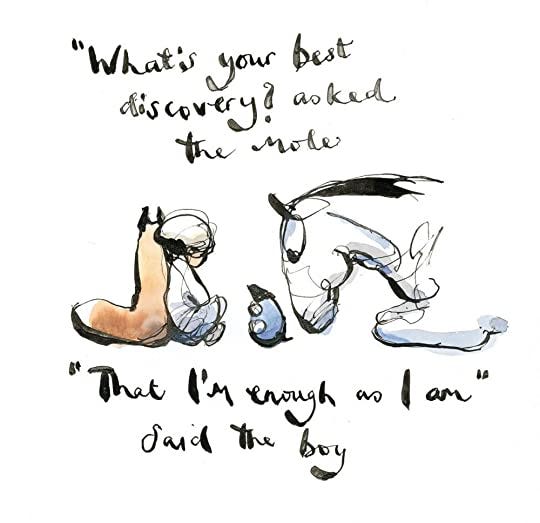 "What's your best
discovery? asked
the Mole
"That I'm enough as I am"
Said the boy